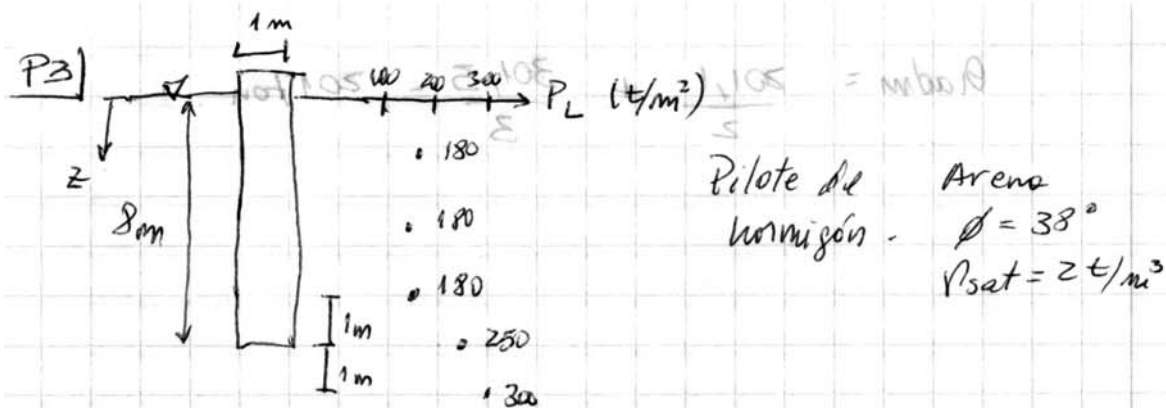 1m
P3
100 200 300
P_L (t/m²)
z
8m
180
180
180
1m
250
1m
300
Pilote de
hormigón.
Arena
ø = 38°
γsat = 2 t/m³